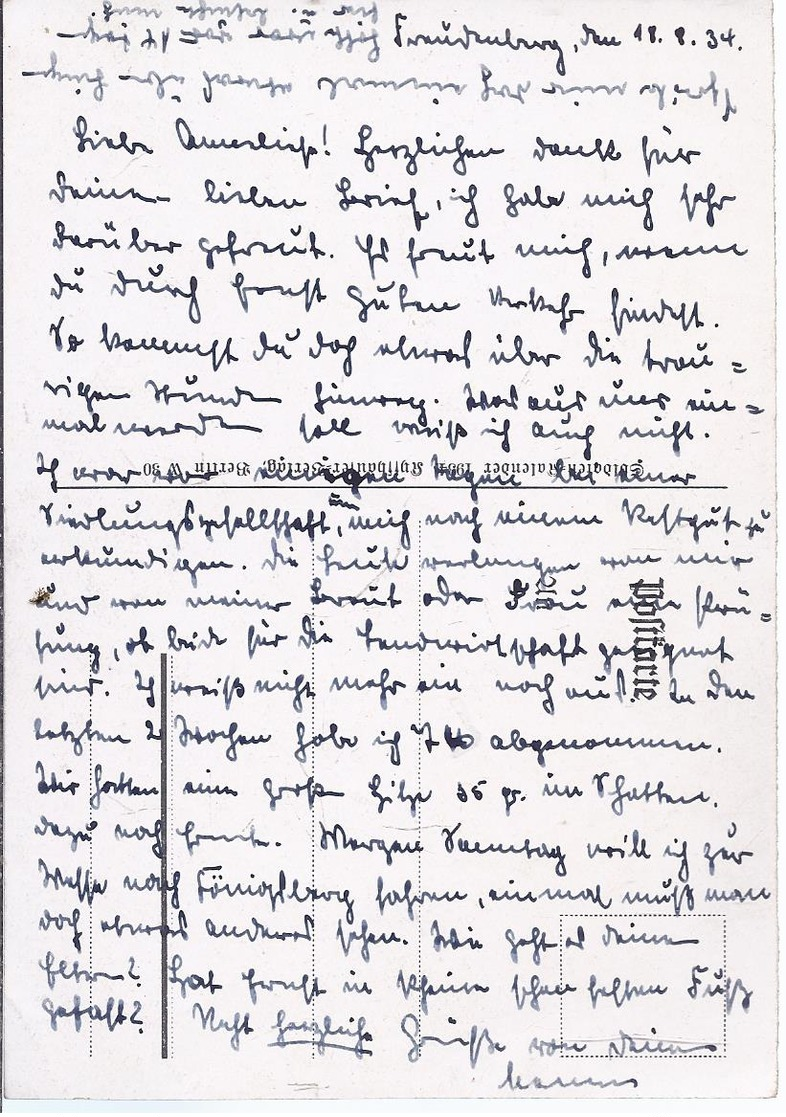 Freudenberg, den 18. 8. 34.
Liebe Anneliese! Herzlichen Dank für
deinen lieben Brief, ich habe mich sehr
darüber gefreut. Es freut mich, wenn
du durch Ernst guten Verkehr findest.
So kommst du doch etwas über die trau=
rigen Stunden hinweg. Was aus uns ein=
mal werden soll weiß ich auch nicht.
Kyffhäuser-Verlag, Berlin W 30
Ich war vor einigen Tagen bei einer
Siedlungsgesellschaft, um mich nach einem Restgut zu
erkundigen. Die Leute verlangen von mir
und von meiner Braut oder Frau eine Prü=
fung, ob beide für die Landwirtschaft geeignet
sind. Ich weiß nicht mehr ein noch aus. In den
Postkarte
letzten 2 Wochen habe ich 7 ℔ abgenommen.
Wir hatten eine große Hitze 35 gr. im Schatten.
dazu noch Ernte. Morgen Sonntag will ich zur
Messe nach Königsberg fahren, einmal muß man
doch etwas anderes sehen. Wie geht es deinen
Eltern? Hat Ernst in Rheine schon festen Fuß
gefaßt? Recht herzliche Grüße von deinem